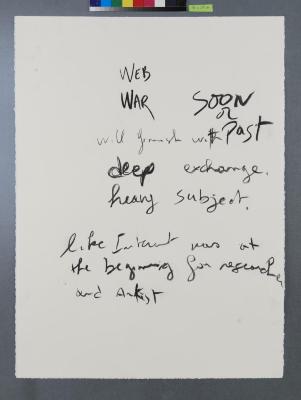 WEB
WAR SOON
or
will with Past
deep exchange.
heavy subject.
like Internet was at
the beginning for researcher
and Artist